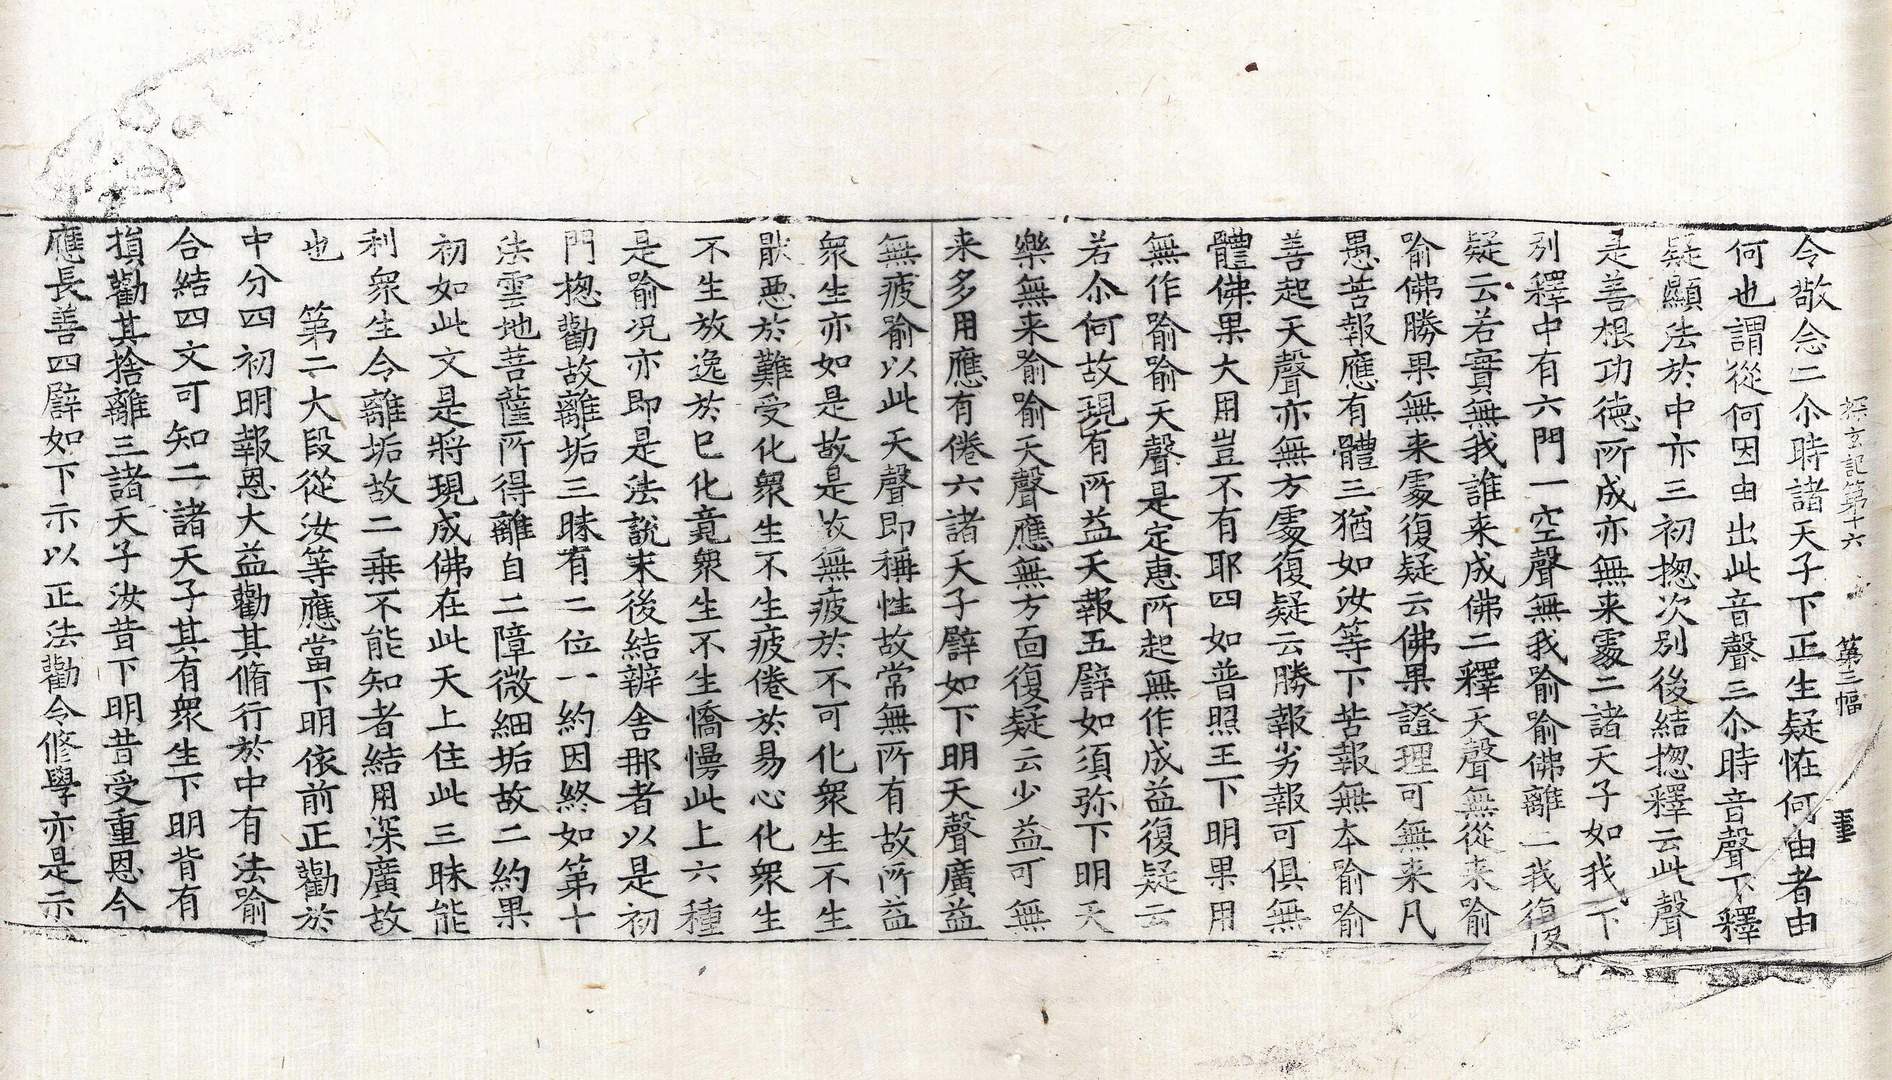 探玄記第十六　第三幅　垂
令敬念二尒時諸天子下正生疑恠何由者由
何也謂從何因由出此音聲三尒時音聲下釋
疑顯法於中亦三初揔次別後結揔釋云此聲
是善根功德所成亦無来處二諸天子如我下
別釋中有六門一空聲無我喻喻佛離二我復
疑云若實無我誰来成佛二釋天聲無從来喻
喻佛勝果無来處復疑云佛果證理可無来凡
愚苦報應有體三猶如汝等下苦報無本喻喻
善起天聲亦無方處復疑云勝報劣報可俱無
體佛果大用豈不有耶四如普照王下明果用
無作喻喻天聲是定惠所起無作成益復疑云
若尒何故現有所益天報五譬如須弥下明天
樂無来喻喻天聲應無方面復疑云少益可無
来多用應有倦六諸天子譬如下明天聲廣益
無疲喻以此天聲即稱性故常無所有故所益
衆生亦如是故是故無疲於不可化衆生不生
猒惡於難受化衆生不生疲倦於易心化衆生
不生放逸於巳化竟衆生不生憍慢此上六種
是喻况亦即是法說末後結辨舍那者以是初
門揔勸故離垢三昧有二位一約因終如第十
法雲地菩薩所得離自二障微細垢故二約果
初如此文是將現成佛在此天上住此三昧能
利衆生令離垢故二乗不能知者結用深廣故
也　第二大段從汝等應當下明依前正勸於
中分四初明報恩大益勸其脩行於中有法喻
合結四文可知二諸天子其有衆生下明背有
損勸其捨離三諸天子汝昔下明昔受重恩今
應長善四譬如下示以正法勸令修學亦是示